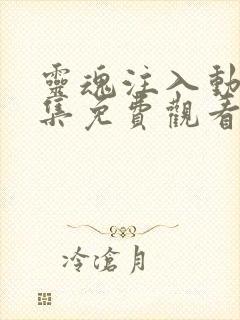 靈魂注入動
集免費觀看
冷滄月